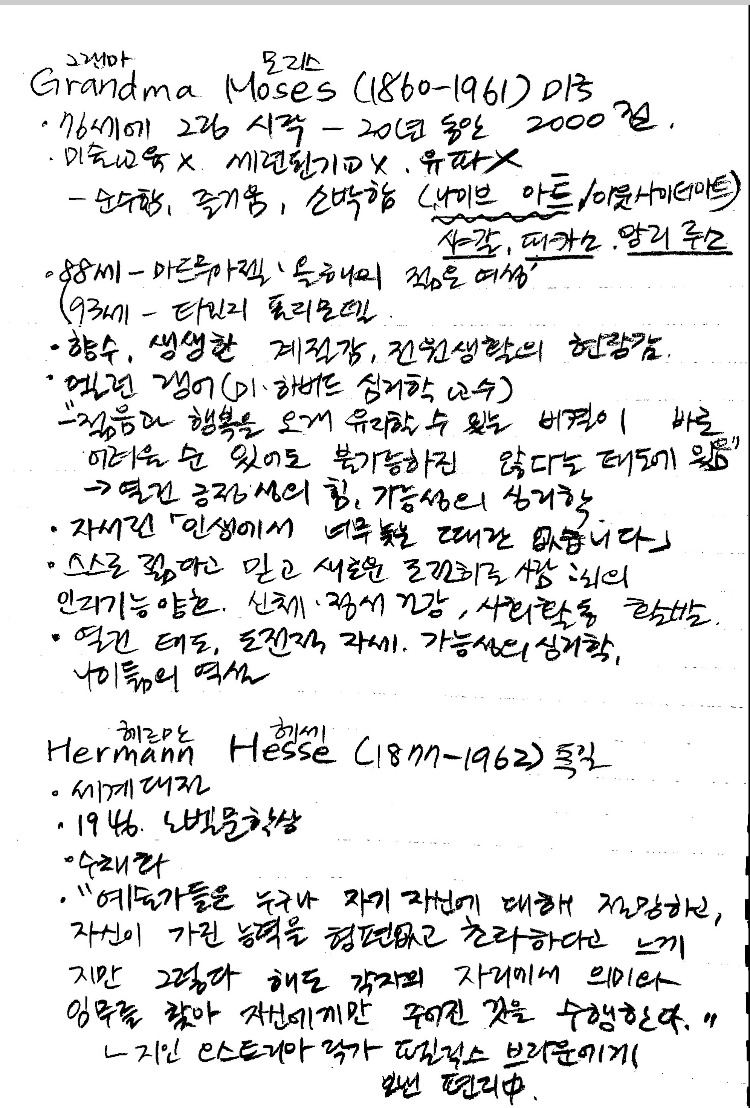 그랜마 모리스
Grandma Moses (1860-1961) 미국
· 76세에 그림 시작 - 20년 동안 2000점.
· 미술교육 X 세련된기교 X. 유파 X
- 순수함, 즐거움, 소박함 (나이브 아트, 아웃사이더아트)
샤갈, 피카소, 앙리 루소
· 88세 - 마드무아젤 '올해의 젊은 여성'
(93세 - 타임지 표지모델
· 향수, 생생한 계절감, 전원생활의 현장감
· 엘렌 랭어(미·하버드 심리학 교수)
- "젊음과 행복을 오래 유지할 수 있는 비결이 바로
어려울 순 있어도 불가능하진 않다는 태도에 있음"
→ 열린 긍정성의 힘, 가능성의 심리학
· 자서전 「인생에서 너무 늦은 때란 없습니다」
· 스스로 젊다고 믿고 새로운 도전회로 사람
인지기능 양호. 신체·정서 건강, 사회활동 활발.
· 열린 태도, 도전적 자세. 가능성의 심리학,
나이듦의 역설
헤르만 헤세
Hermann Hesse (1877-1962) 독일
· 세계대전
· 1946. 노벨문학상
· 수채화
· "예술가들은 누구나 자기 자신에 대해 절망하고,
자신이 가진 능력을 형편없고 초라하다고 느끼
지만 그렇다 해도 각자의 자리에서 의미와
임무를 찾아 자신에게만 주어진 것을 수행한다."
ㄴ 지인 오스트리아 작가 펠릭스 브라운에게
보낸 편지中.